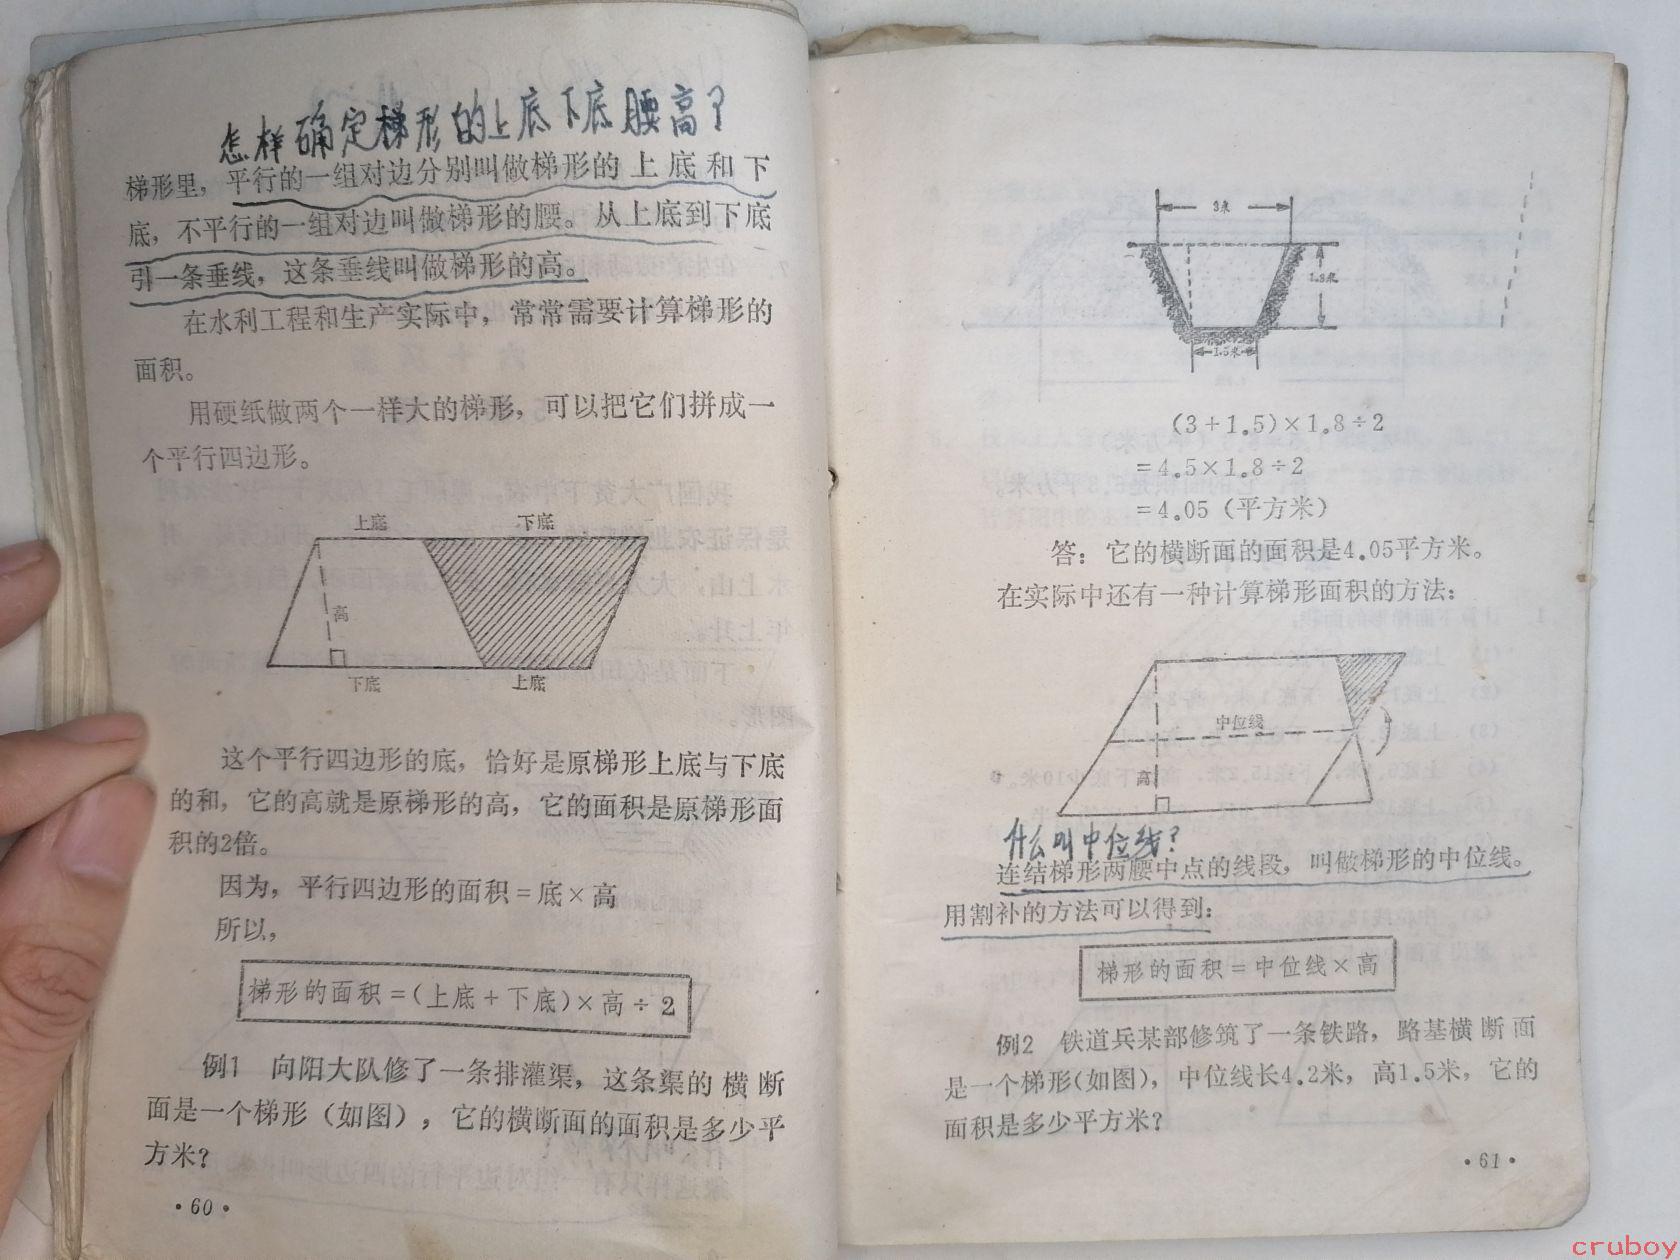 怎样确定梯形的上底下底腰高？
梯形里，平行的一组对边分别叫做梯形的上底和下
底，不平行的一组对边叫做梯形的腰。从上底到下底
引一条垂线，这条垂线叫做梯形的高。
在水利工程和生产实际中，常常需要计算梯形的
面积。
用硬纸做两个一样大的梯形，可以把它们拼成一
个平行四边形。
上底 下底
高
下底 上底
这个平行四边形的底，恰好是原梯形上底与下底
的和，它的高就是原梯形的高，它的面积是原梯形面
积的2倍。
因为，平行四边形的面积＝底×高
所以，
梯形的面积＝(上底＋下底)×高÷2
例1 向阳大队修了一条排灌渠，这条渠的横断
面是一个梯形（如图），它的横断面的面积是多少平
方米？
·60·
3米
1.8米
1.5米
(3＋1.5)×1.8÷2
＝4.5×1.8÷2
＝4.05（平方米）
答：它的横断面的面积是4.05平方米。
在实际中还有一种计算梯形面积的方法：
中位线
高
什么叫中位线？
连结梯形两腰中点的线段，叫做梯形的中位线。
用割补的方法可以得到：
梯形的面积＝中位线×高
例2 铁道兵某部修筑了一条铁路，路基横断面
是一个梯形（如图），中位线长4.2米，高1.5米，它的
面积是多少平方米？
·61·
cruboy